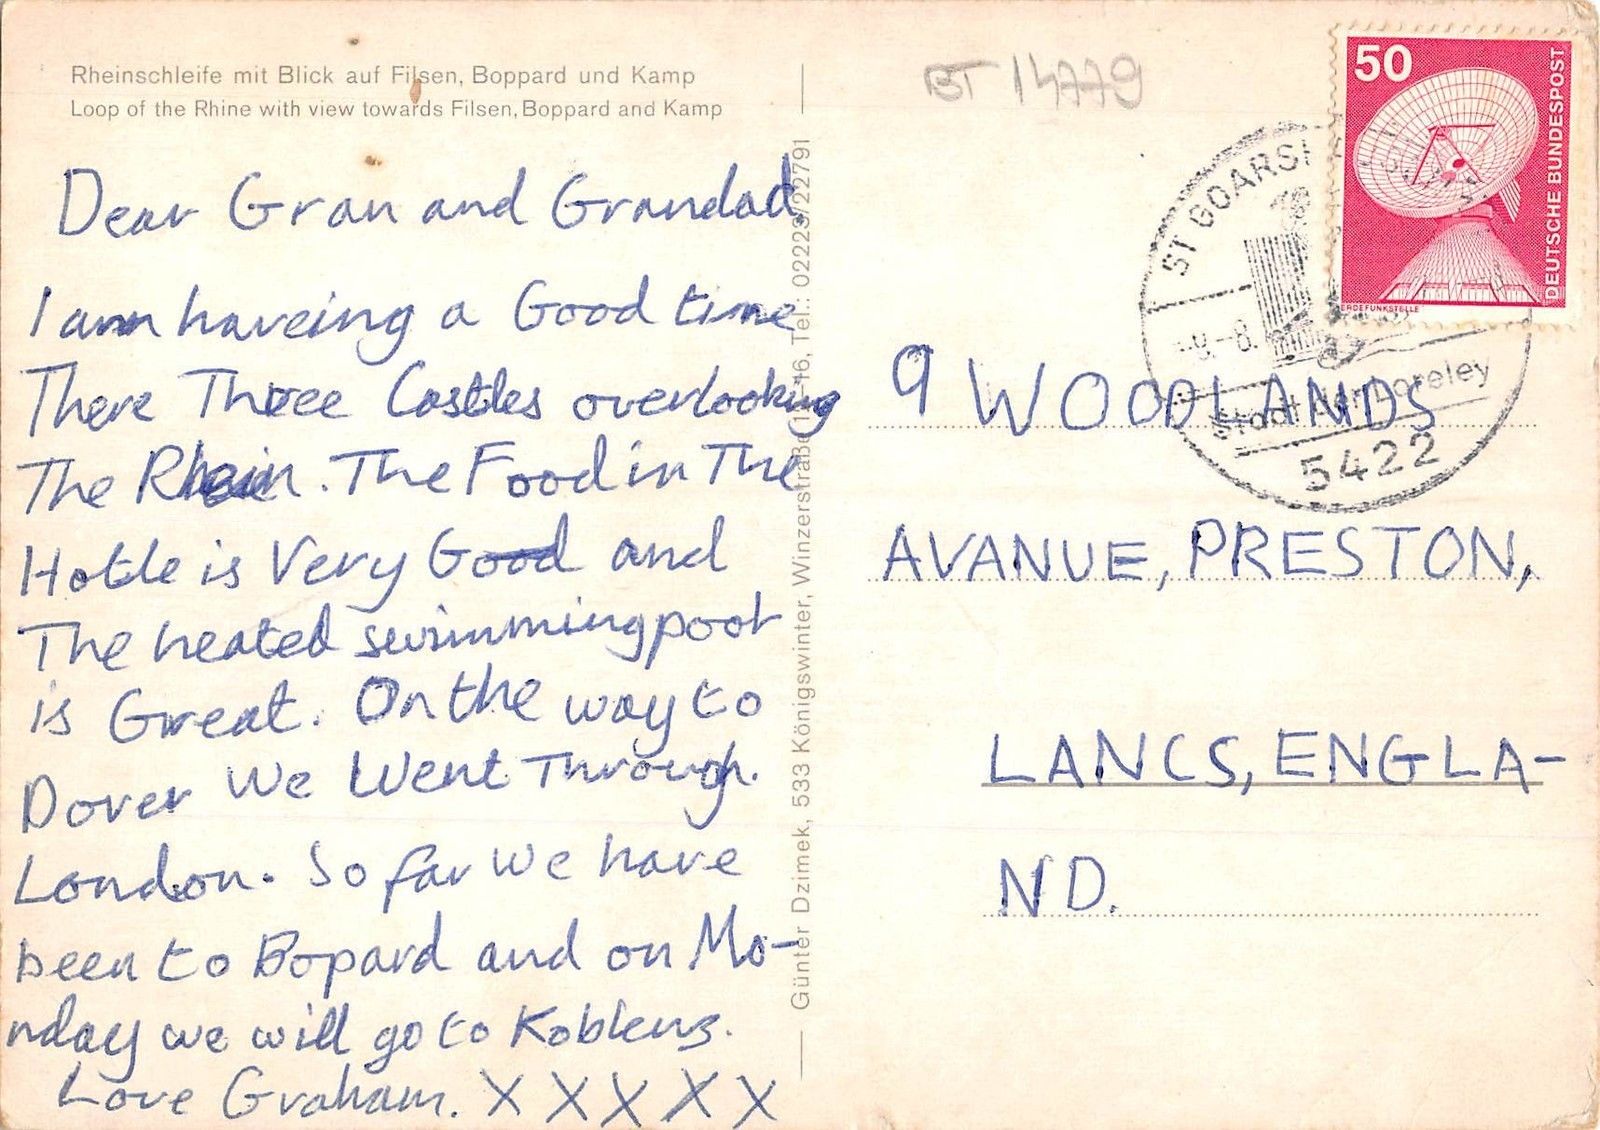 Rheinschleife mit Blick auf Filsen, Boppard und Kamp
Loop of the Rhine with view towards Filsen, Boppard and Kamp
Dear Gran and Grandad,
I am haveing a Good time
There Three Castles overlooking
The Rhein. The Food in The
Hotle is Very Good and
The heated swimmingpool
is Great. On the way to
Dover We Went Through.
London. So far We have
been to Bopard and on Mo-
nday we will go to Koblenz.
Love Graham. X X X X X
Günter Dzimek, 533 Königswinter, Winzerstraße 16, Tel.: 02223/22791
BT 14779
50
DEUTSCHE BUNDESPOST
ERDEFUNKSTELLE
ST GOARSH
-8.
Stadt der Loreley
5422
9 WOODLANDS
AVANUE, PRESTON,
LANCS, ENGLA-
ND.